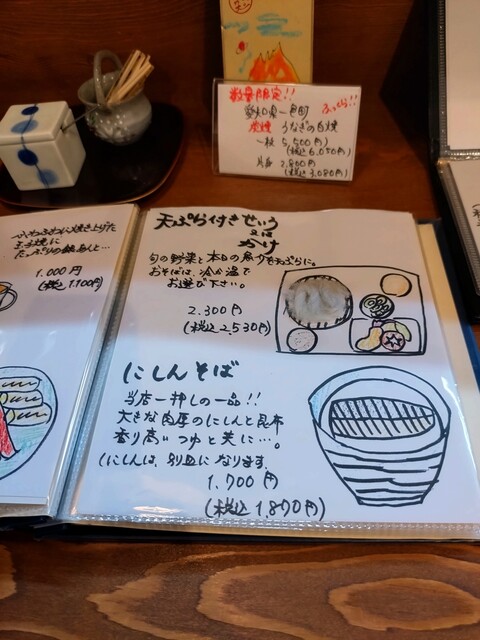 数量限定!!
愛知県一色町
ふっくら!!
炭焼 うなぎの白焼
一枚 5,500円
(税込 6,050円)
片身 2,800円
(税込 3,080円)
ふわふわに焼き上げた
玉子焼に
たっぷりの餡あんと…
1.000円
(税込 1.100円)
天ぷら付きせいろ
又は
かけ
旬の野菜と本日の魚介を天ぷらに。
おそばは、冷か温で
お選び下さい。
2.300円
(税込 2,530円)
にしんそば
当店一押しの一品!!
大きな肉厚のにしんと昆布
香り高いつゆと共に…。
(にしんは、別皿になります。
1.700円
(税込 1,870円)